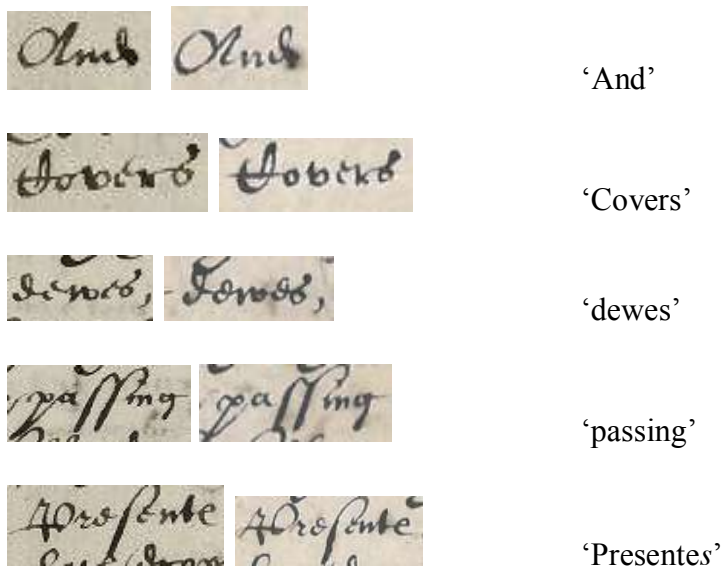 And And ‘And’
Covers Covers ‘Covers’
dewes, dewes, ‘dewes’
passing passing ‘passing’
Presente Presente ‘Presentes’